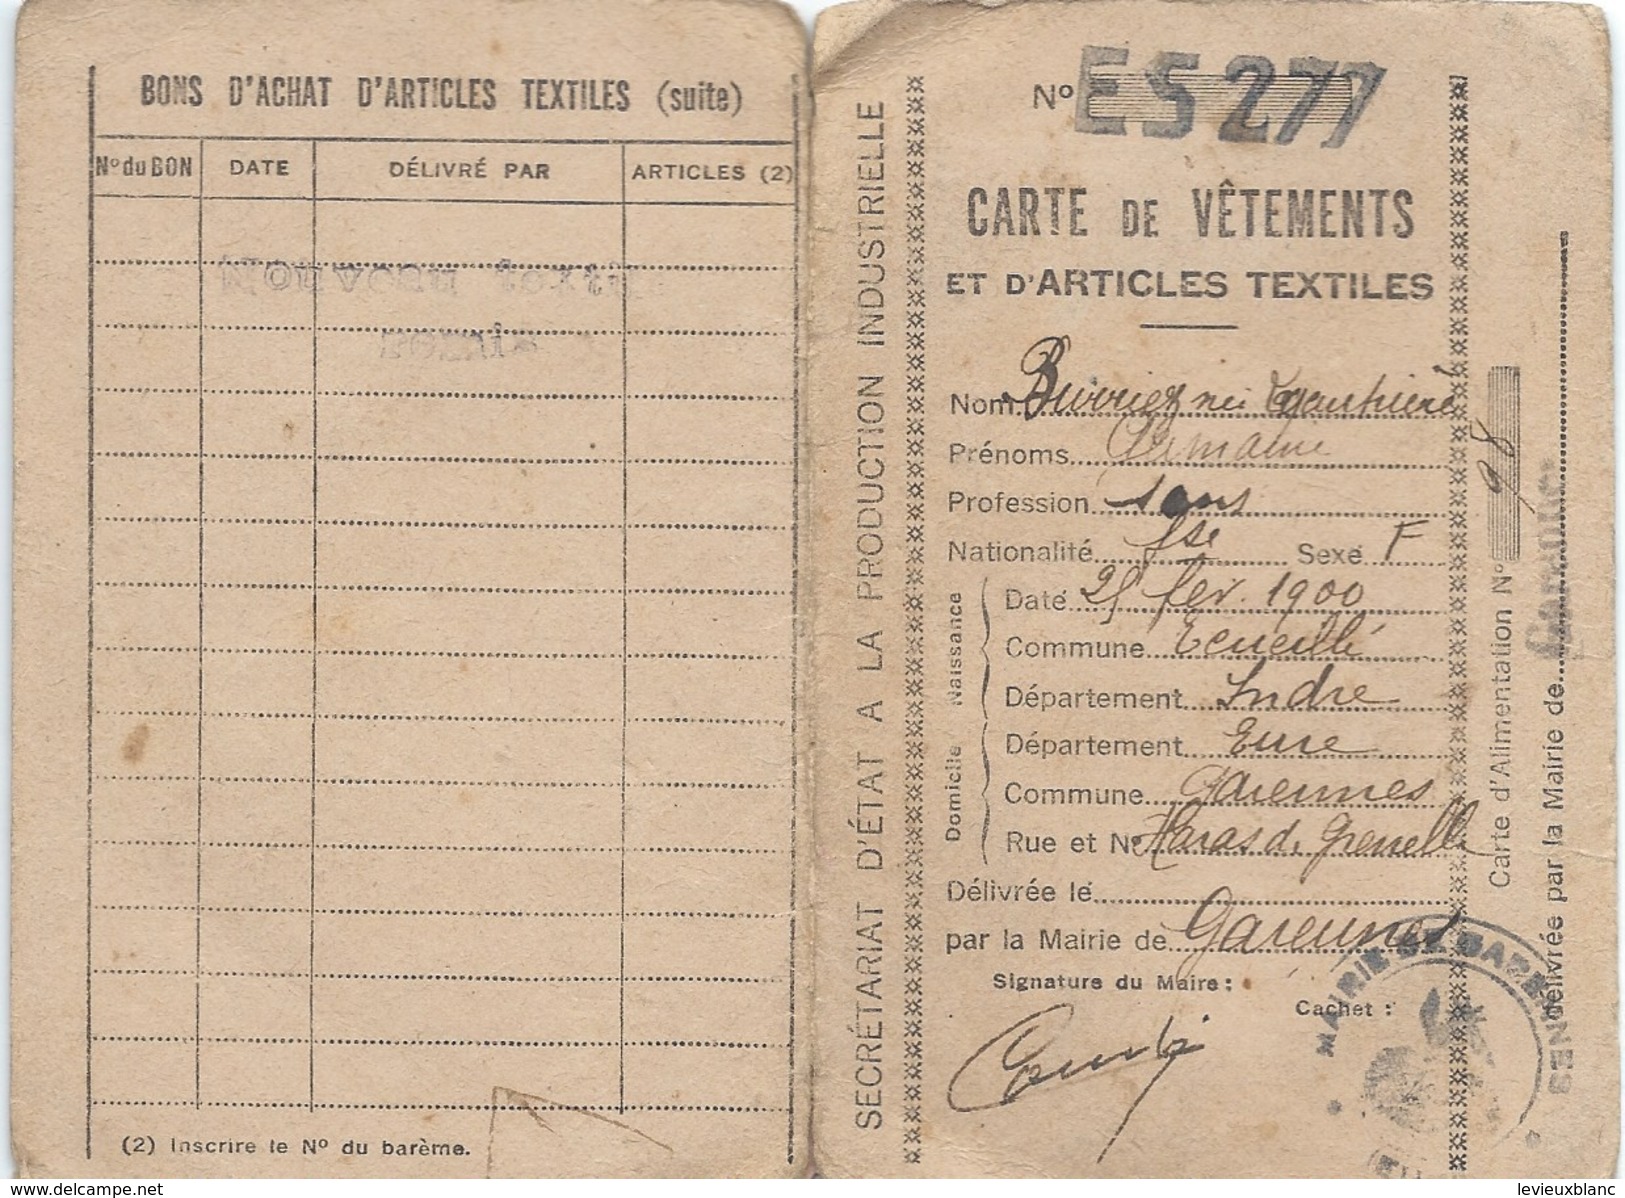 BONS D'ACHAT D'ARTICLES TEXTILES (suite)
N° du BON DATE DÉLIVRÉ PAR ARTICLES (2)
Nouveau textil
remis
(2) Inscrire le N° du barème.
SECRÉTARIAT D'ÉTAT A LA PRODUCTION INDUSTRIELLE
N° ES 277
CARTE DE VÊTEMENTS
ET D'ARTICLES TEXTILES
Nom Burriez née
Prénoms
Profession sans
Nationalité fse Sexe F
Naissance
Date 25 fev. 1900
Commune Ecueillé
Département Indre
Domicile
Département Eure
Commune Garennes
Rue et N° Haras de Grenelle
Délivrée le
par la Mairie de Garennes
Signature du Maire :
Cachet :
MAIRIE DE GARENNES
Carte d'Alimentation N° 98
délivrée par la Mairie de Garennes
levieuxblanc
www.delcampe.net